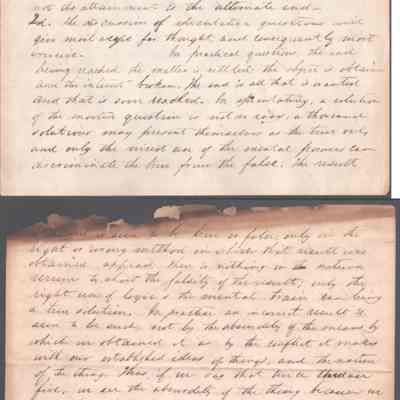 not the attainment to the ultimate end.
2d. The discussion of speculative questions will
give most scope for thought, and consequently most
exercise. In practical questions, the end
being reached the matter is settled the object is obtain
and the interest broken. The end is all that is wanted
and that is soon reached. In speculating, a solution
of the mooted question is not so easy, a thousand
solutions may present themselves as the true only
and only the nicest use of the mental powers can
discriminate the true from the false. The result
is seen to be true or false, only in the
right or wrong method in which that result was
obtained, there is nothing in the nature
to show the falsity of the result; only the
right use of logic & the mental train can bring
a true solution. In practice an incorrect result is
seen to be such, not by the absurdity of the means by
which we obtained it as by the conflict it makes
with our established ideas of things, and the nature
of the thing. Thus if we say that three
five, we see the absurdity of the thing because we